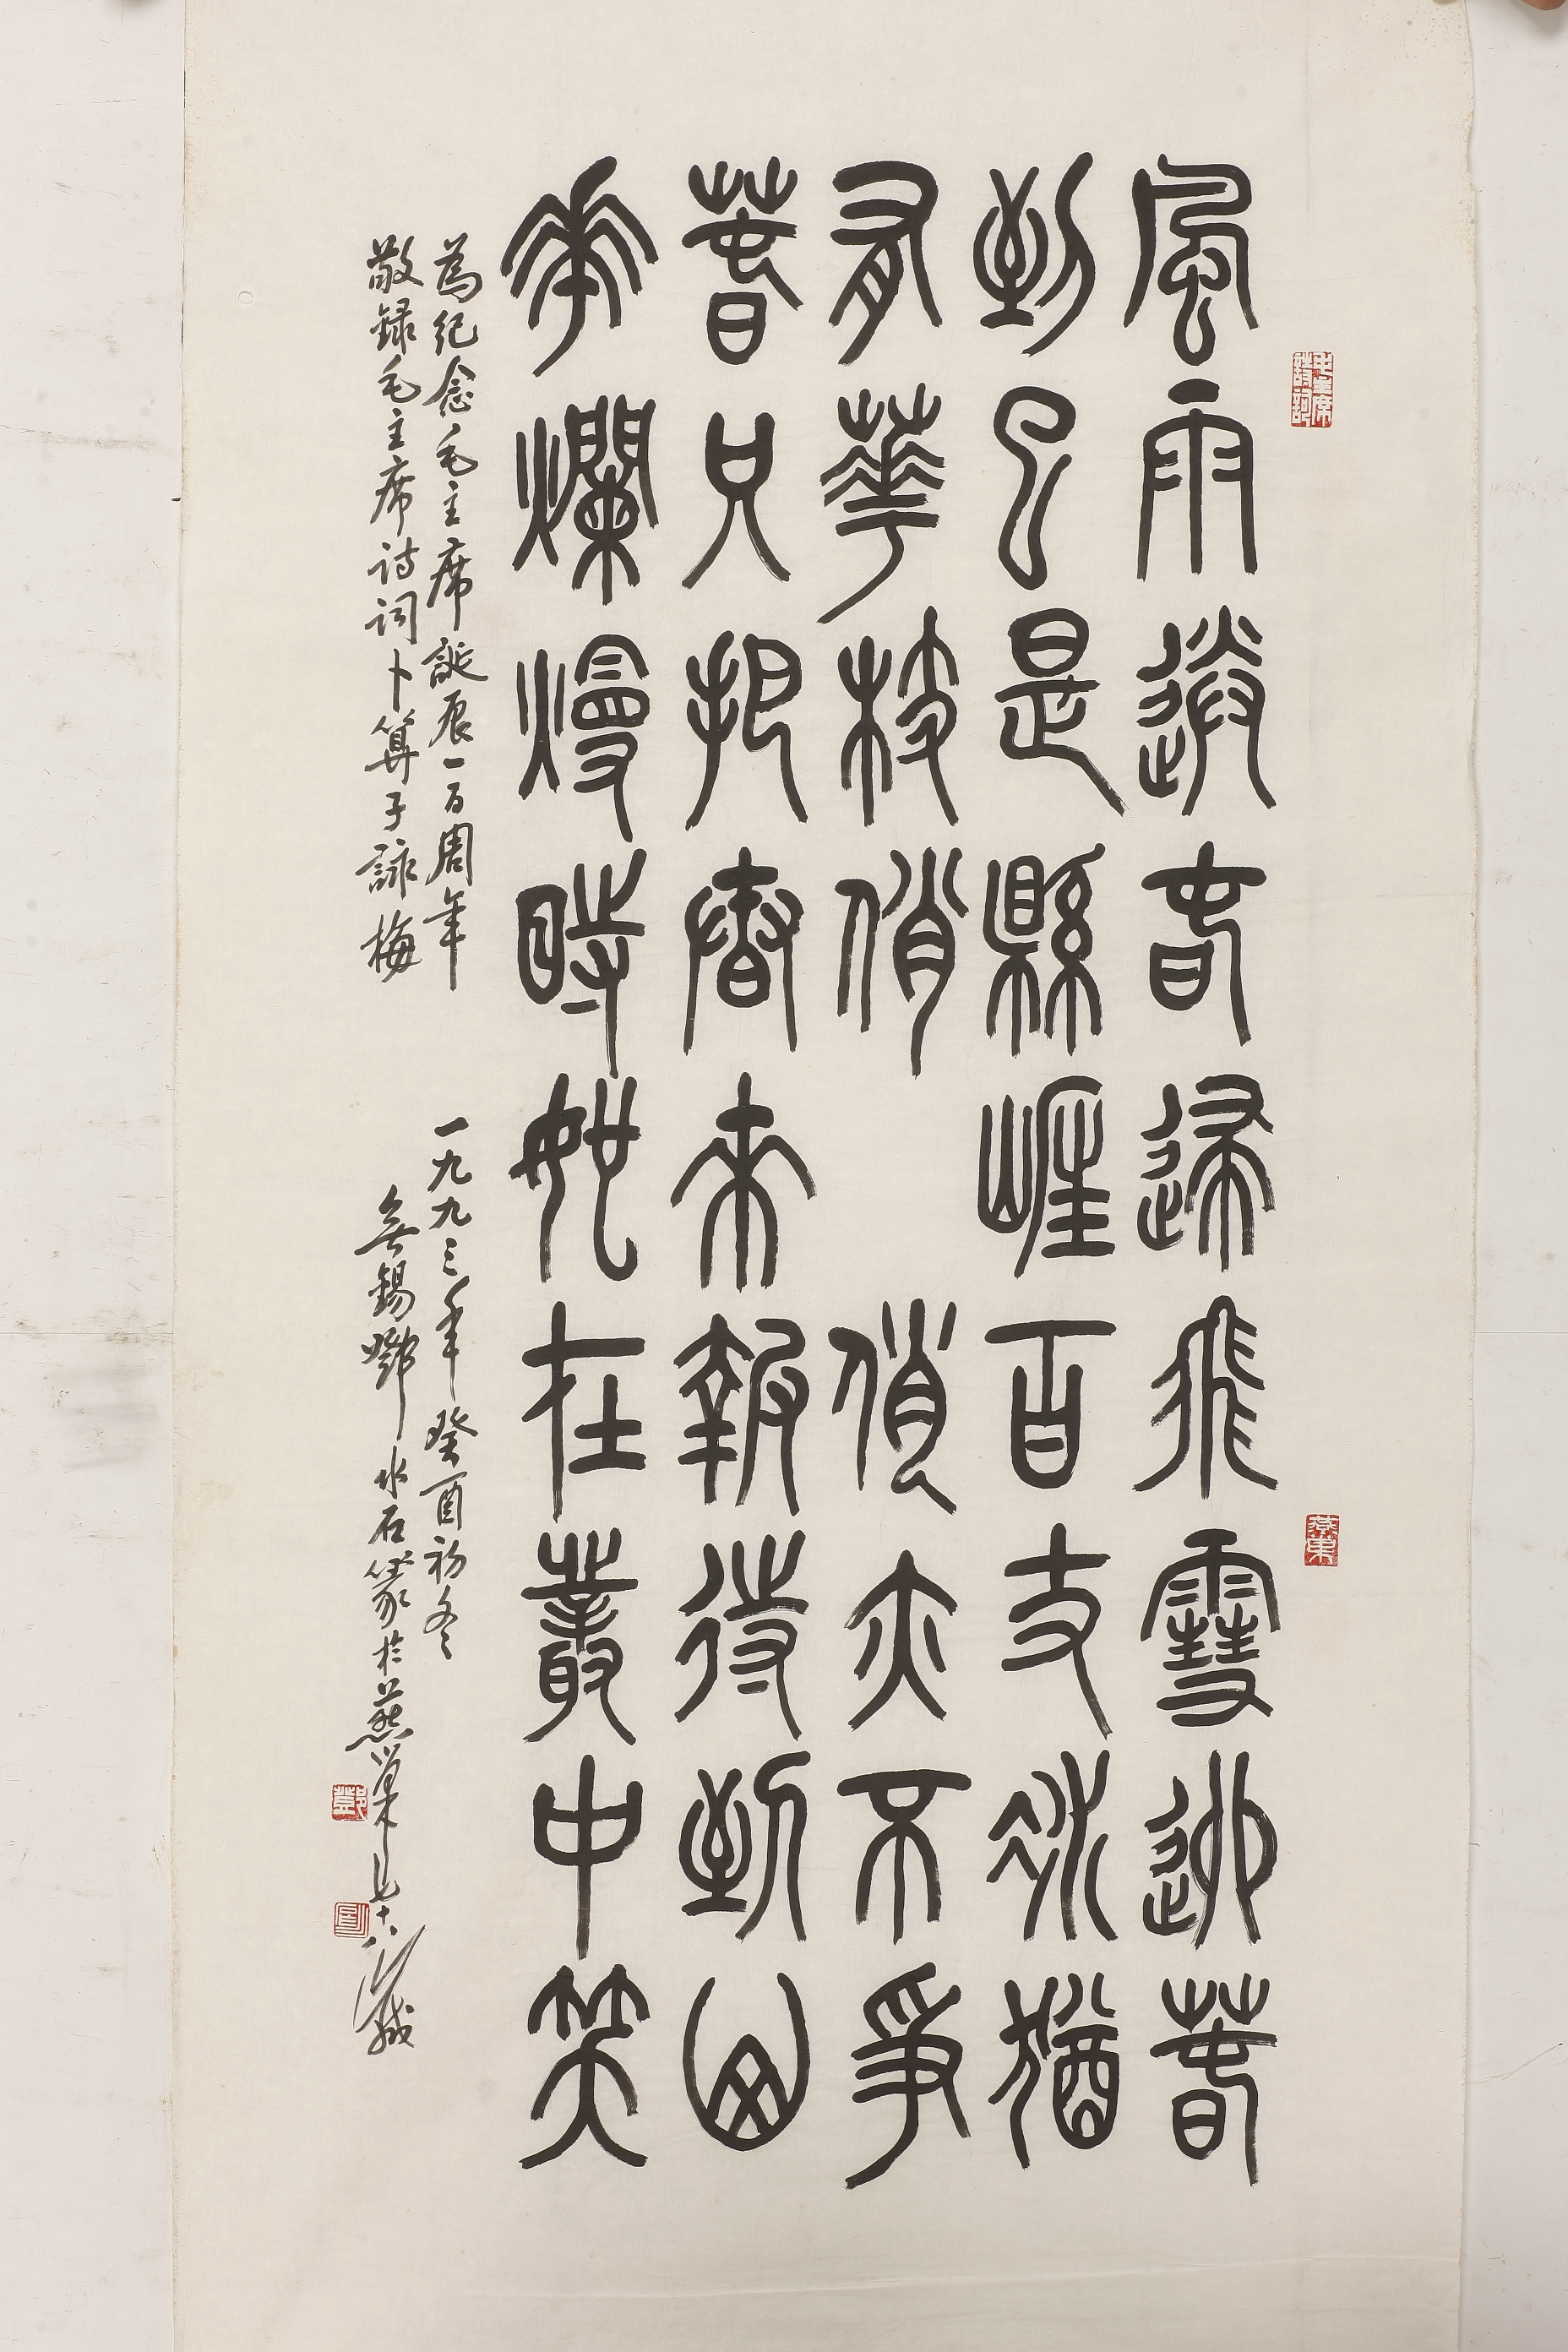 毛主席詩詞
風雨送春歸飛雪迎春
到已是縣崖百丈冰猶
有華枝俏 俏亦不爭
春只把春來報待到山
華爛熳時她在叢中笑
為紀念毛主席誕辰一百周年 一九九三年癸酉初冬
敬録毛主席诗词卜算子詠梅 無錫鄧水石篆於燕巢七十八歲
燕巢
鄧